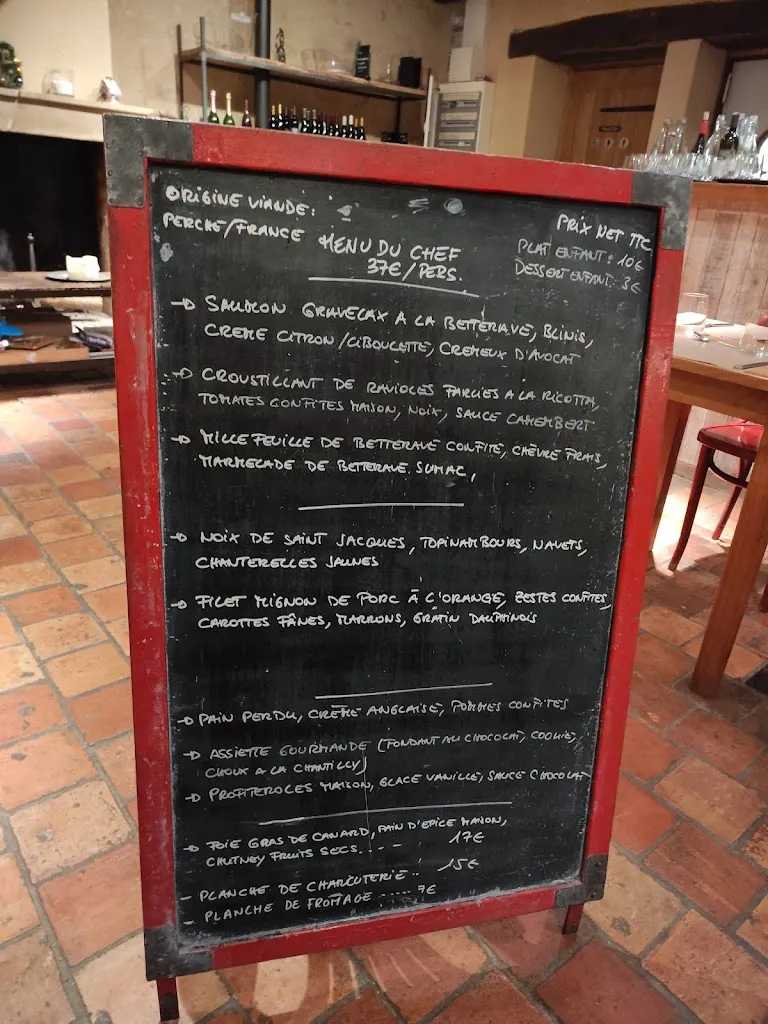 ORIGINE VIANDE:
PERCHE/FRANCE
MENU DU CHEF
37€/PERS.
PRIX NET TTC
PLAT ENFANT: 10€
DESSERT ENFANT: 3€
→ SAUMON GRAVELAX A LA BETTERAVE, BLINIS,
CREME CITRON/CIBOULETTE, CREMEUX D'AVOCAT
→ CROUSTILLANT DE RAVIOLES FARCIES A LA RICOTTA,
TOMATES CONFITES MAISON, NOIX, SAUCE CAMEMBERT
→ MILLE FEUILLE DE BETTERAVE CONFITE, CHÈVRE FRAIS,
MARMELADE DE BETTERAVE SUMAC,
→ NOIX DE SAINT JACQUES, TOPINAMBOURS, NAVETS,
CHANTERELLES JAUNES
→ FILET MIGNON DE PORC À L'ORANGE, ZESTES CONFITES,
CAROTTES FÂNES, MARRONS, GRATIN DAUPHINOIS
→ PAIN PERDU, CRÈME ANGLAISE, POMMES CONFITES
→ ASSIETTE GOURMANDE (FONDANT AU CHOCOLAT, COOKIE,
CHOUX A LA CHANTILLY)
→ PROFITEROLES MAISON, GLACE VANILLE, SAUCE CHOCOLAT
→ FOIE GRAS DE CANARD, PAIN D'EPICE MAISON,
CHUTNEY FRUITS SECS.---- 17€
- PLANCHE DE CHARCUTERIE.. 15€
- PLANCHE DE FROMAGE ..... 7€